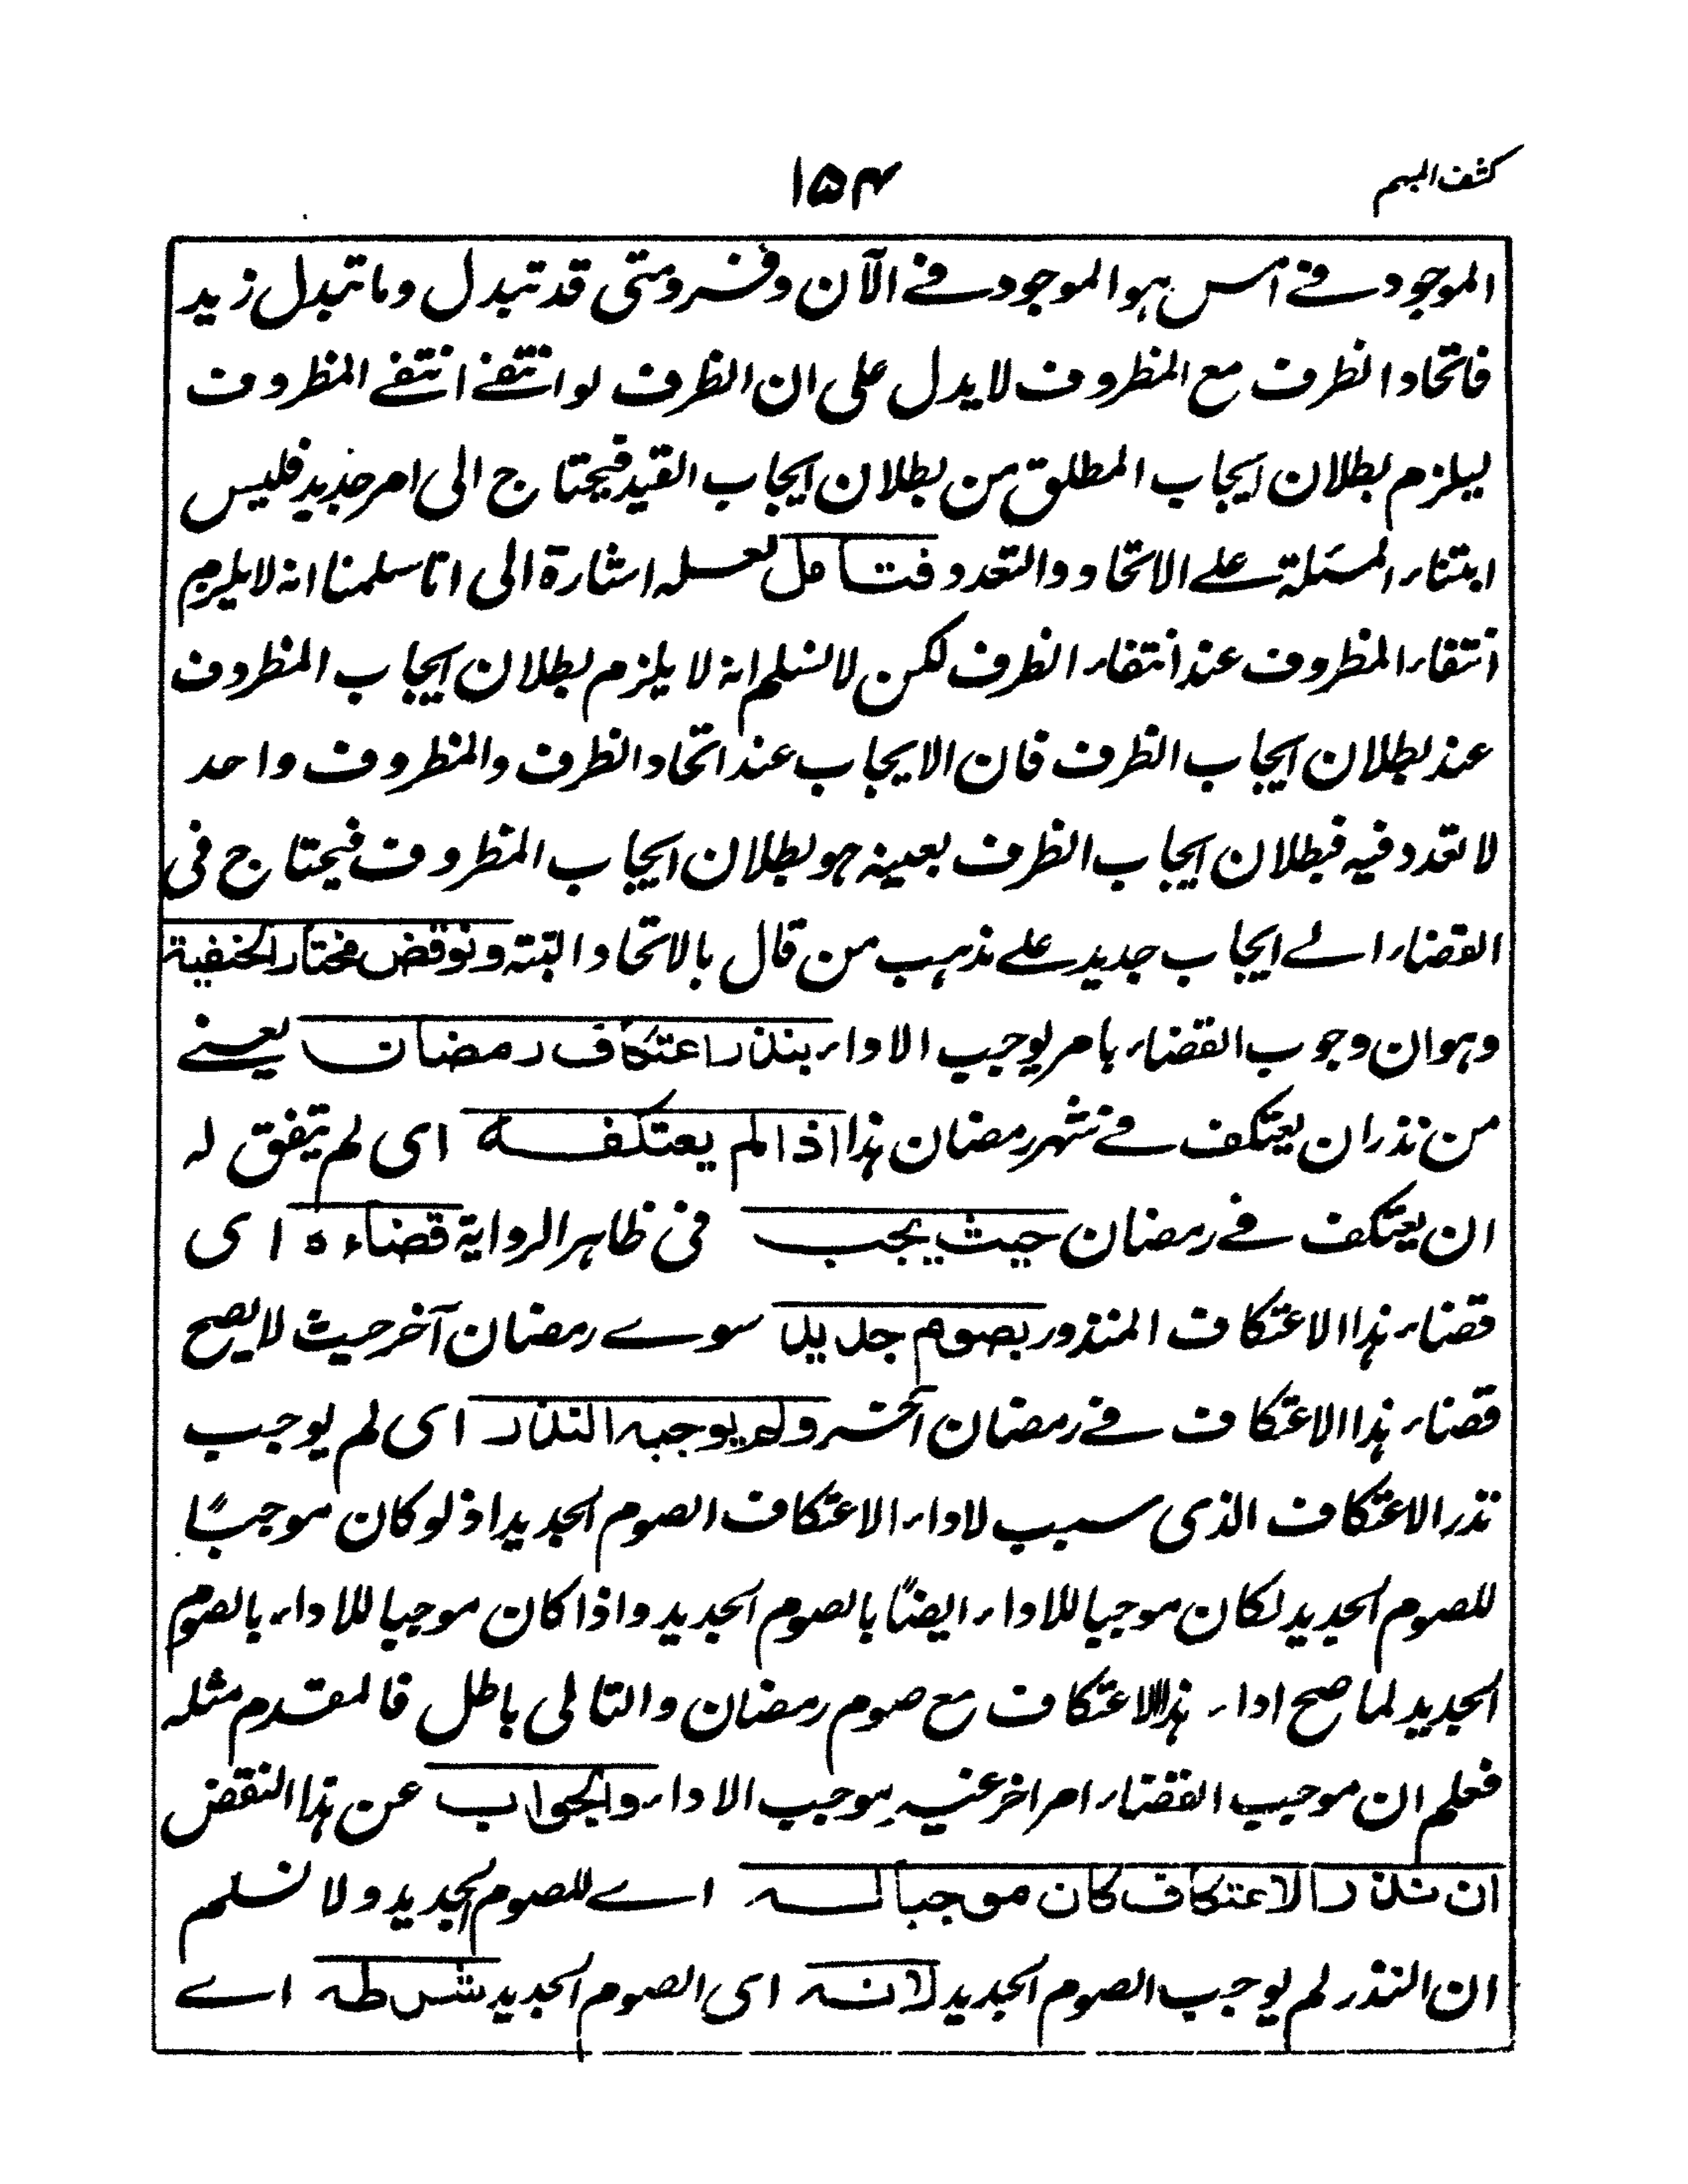 كشف المبهم
۱۵۴
الموجود في امس هو الموجود في الآن وفرد متى قد تبدل وما تبدل زيد
فاتحاد الظرف مع المظروف لا يدل على ان الظرف لو انتفى انتفى المظروف
ليلزم بطلان ايجاب المطلق من بطلان ايجاب القيد فيحتاج الى امر جديد فليس
ابتناء المسئلة على الاتحاد والتعدد فتامل لعله اشارة الى انا سلمنا انه لا يلزم
انتفاء المظروف عند انتفاء الظرف لكن لا نسلم انه لا يلزم بطلان ايجاب المظروف
عند بطلان ايجاب الظرف فان الايجاب عند اتحاد الظرف والمظروف واحد
لا تعدد فيه فبطلان ايجاب الظرف بعينه هو بطلان ايجاب المظروف فيحتاج فى
القضاء الى ايجاب جديد على مذهب من قال بالاتحاد البتة ونوقض مختار الحنفية
وهو ان وجوب القضاء بامر يوجب الاداء بنذر اعتكاف رمضان يعنى
من نذر ان يعتكف فى شهر رمضان هذا اذا لم يعتكفه اى لم يتفق له
ان يعتكف فى رمضان حيث يجب فى ظاهر الرواية قضاءه اى
قضاء هذا الاعتكاف المنذور بصوم جديد سوى رمضان آخر حيث لا يصح
قضاء هذا الاعتكاف فى رمضان آخر ولم يوجبه النذر اى لم يوجب
نذر الاعتكاف الذى سبب لاداء الاعتكاف الصوم الجديد اذ لو كان موجبًا
للصوم الجديد لكان موجبا للاداء ايضًا بالصوم الجديد واذا كان موجبا للاداء بالصوم
الجديد لما صح اداء هذا الاعتكاف مع صوم رمضان والتالى باطل فالمقدم مثله
فعلم ان موجب القضاء امر اخر غير موجب الاداء والجواب عن هذا النقض
ان نذر الاعتكاف كان موجبا له اى للصوم الجديد ولا نسلم
ان النذر لم يوجب الصوم الجديد لانه اى الصوم الجديد شرطه اى